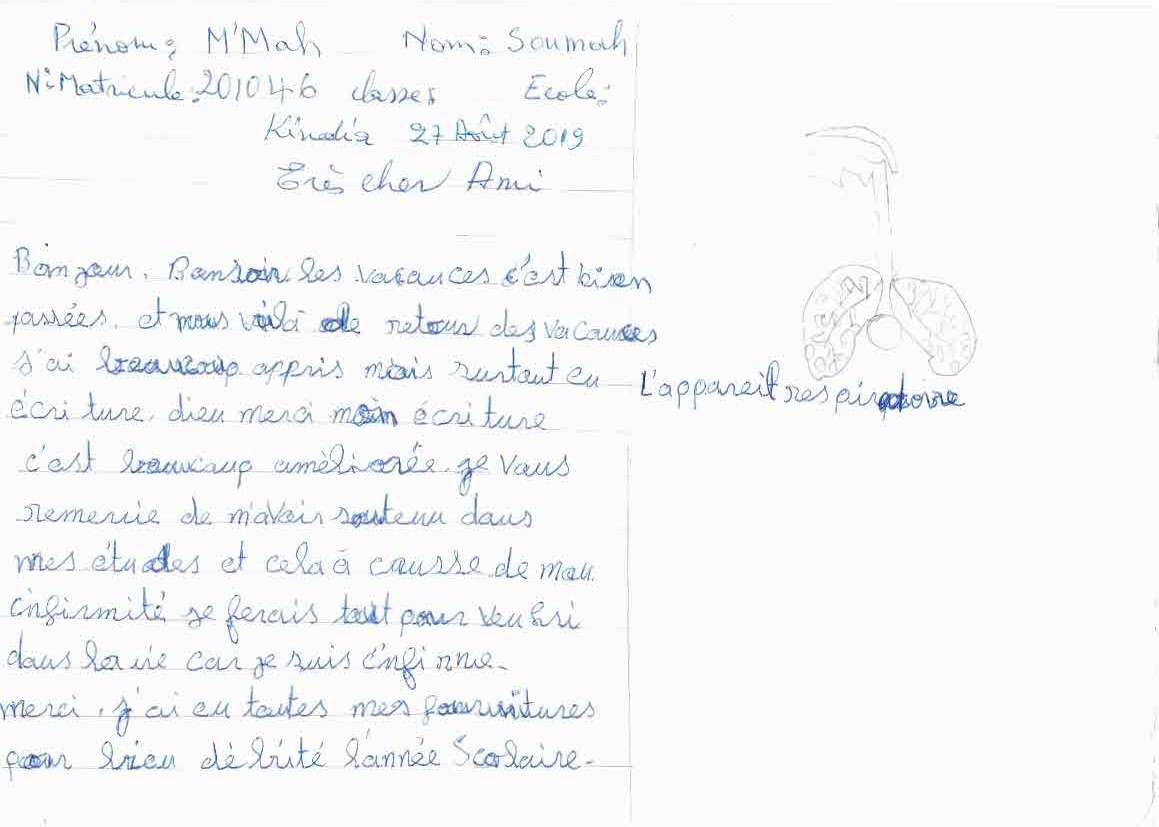 Prénom : M'Mah Nom : Soumah
N° Matricule : 201046 classes Ecole :
Kindia 27 Août 2019
Très cher Ami
Bonjour. Bonsoir les vacances c'est bien
passées. et nous voilà de retour des vacances
j'ai beaucoup appris mais surtout en
écriture. dieu merci mon écriture
c'est beaucoup améliorée. je vous
remercie de m'avoir soutenu dans
mes études et cela à causse de mon
infirmité je ferais tout pour
dans la vie car je suis infirme.
merci, j'ai eu toutes mes fournitures
pour bien débité l'année Scolaire.
L'appareil respiratoire